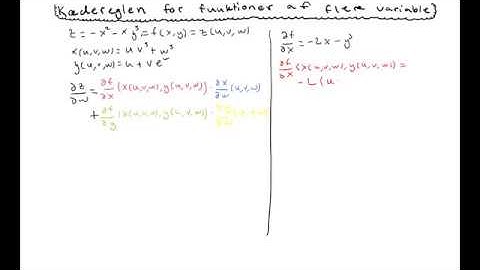 Kædereglen for funktioner af flere variable
z = -x² - xy³ = f(x,y) = z(u,v,w)
x(u,v,w) = uv³ + w³
y(u,v,w) = u + ve^w
∂z/∂w = ∂f/∂x (x(u,v,w), y(u,v,w)) · ∂x/∂w (u,v,w)
+ ∂f/∂y (x(u,v,w), y(u,v,w)) ·
∂f/∂x = -2x - y³
∂f/∂x (x(u,v,w), y(u,v,w)) =
(u